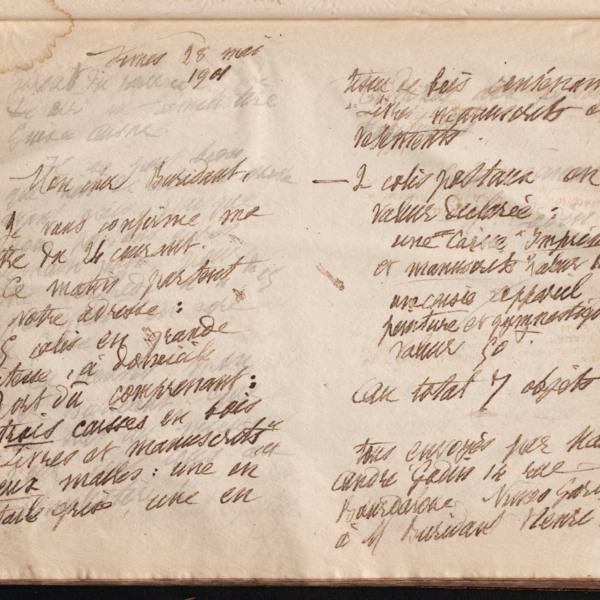 Nimes 28 mai
1901
Mon cher Buridant
Je vous confirme ma
tre du 24 courant.
Ce matin partent
votre adresse :
5 colis en grande
itesse, à domicile
port dû comprenant :
trois caisses en bois
"Livres et manuscrits"
eux malles : une en
toile grise, une en
tissu de bois contenan
"Livres manuscrits
vêtements.
— 2 colis postaux
valeur déclarée :
une "Caisse" Imprim
et manuscrits valeur
une caisse appareil
peinture et gymnastiqu
valeur 50
Au total 7 objets
tous envoyés par
André Godin 14 rue
Bourdaloue Nimes Gar
à M Buridant Henri